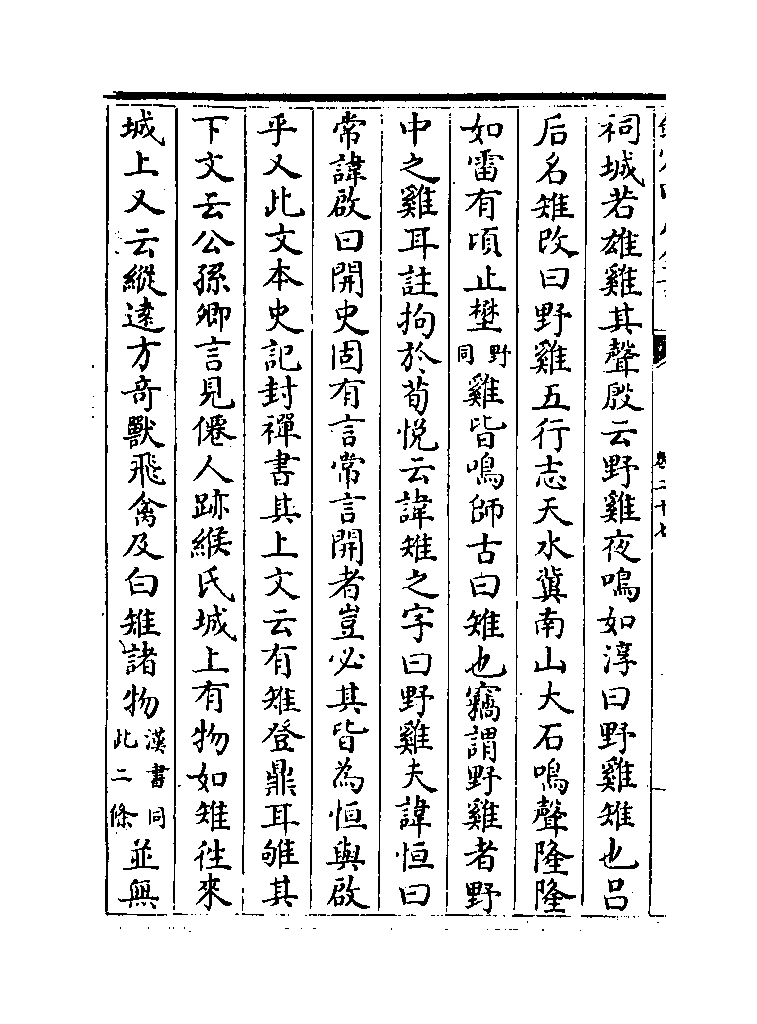 卷二十七
祠城若雄雞其聲殷云野雞夜鳴如淳曰野雞雉也吕
后名雉改曰野雞五行志天水冀南山大石鳴聲隆隆
如雷有頃止壄野同雞皆鳴師古曰雉也竊謂野雞者野
中之雞耳註拘於荀悅云諱雉之字曰野雞夫諱恒曰
常諱啟曰開史固有言常言開者豈必其皆為恒與啟
乎又此文本史記封禪書其上文云有雉登鼎耳雊其
下文云公孫卿言見僊人跡緱氏城上有物如雉徃來
城上又云縱遠方奇獸飛禽及白雉諸物漢書同此二條並無